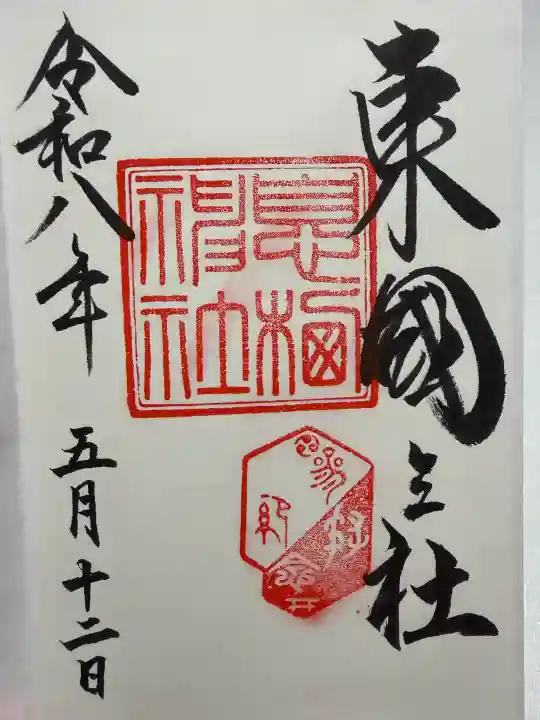 東國三社
息栖
神社
令和八年 五月十二日